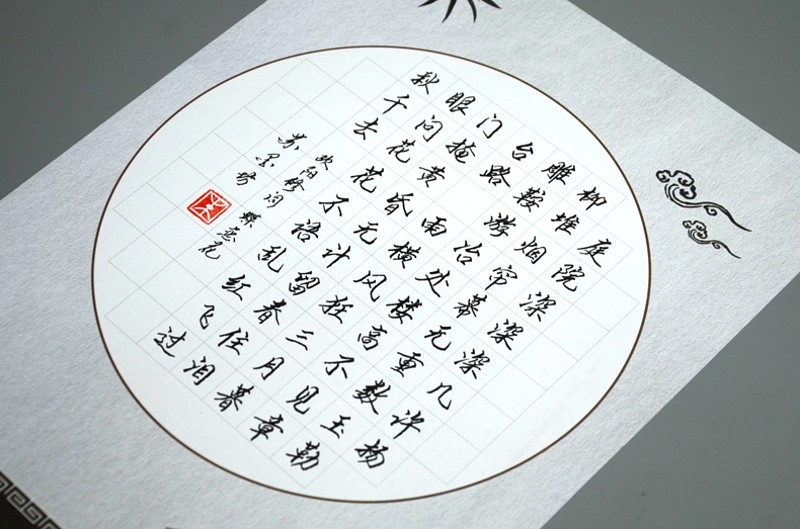 庭院深深深几许杨
柳堆烟帘幕无重数玉勒
雕鞍游冶处楼高不见章
台路雨横风狂三月暮
门掩黄昏无计留春住泪
眼问花花不语乱红飞过
秋千去
欧阳修词 蝶恋花
苏墨